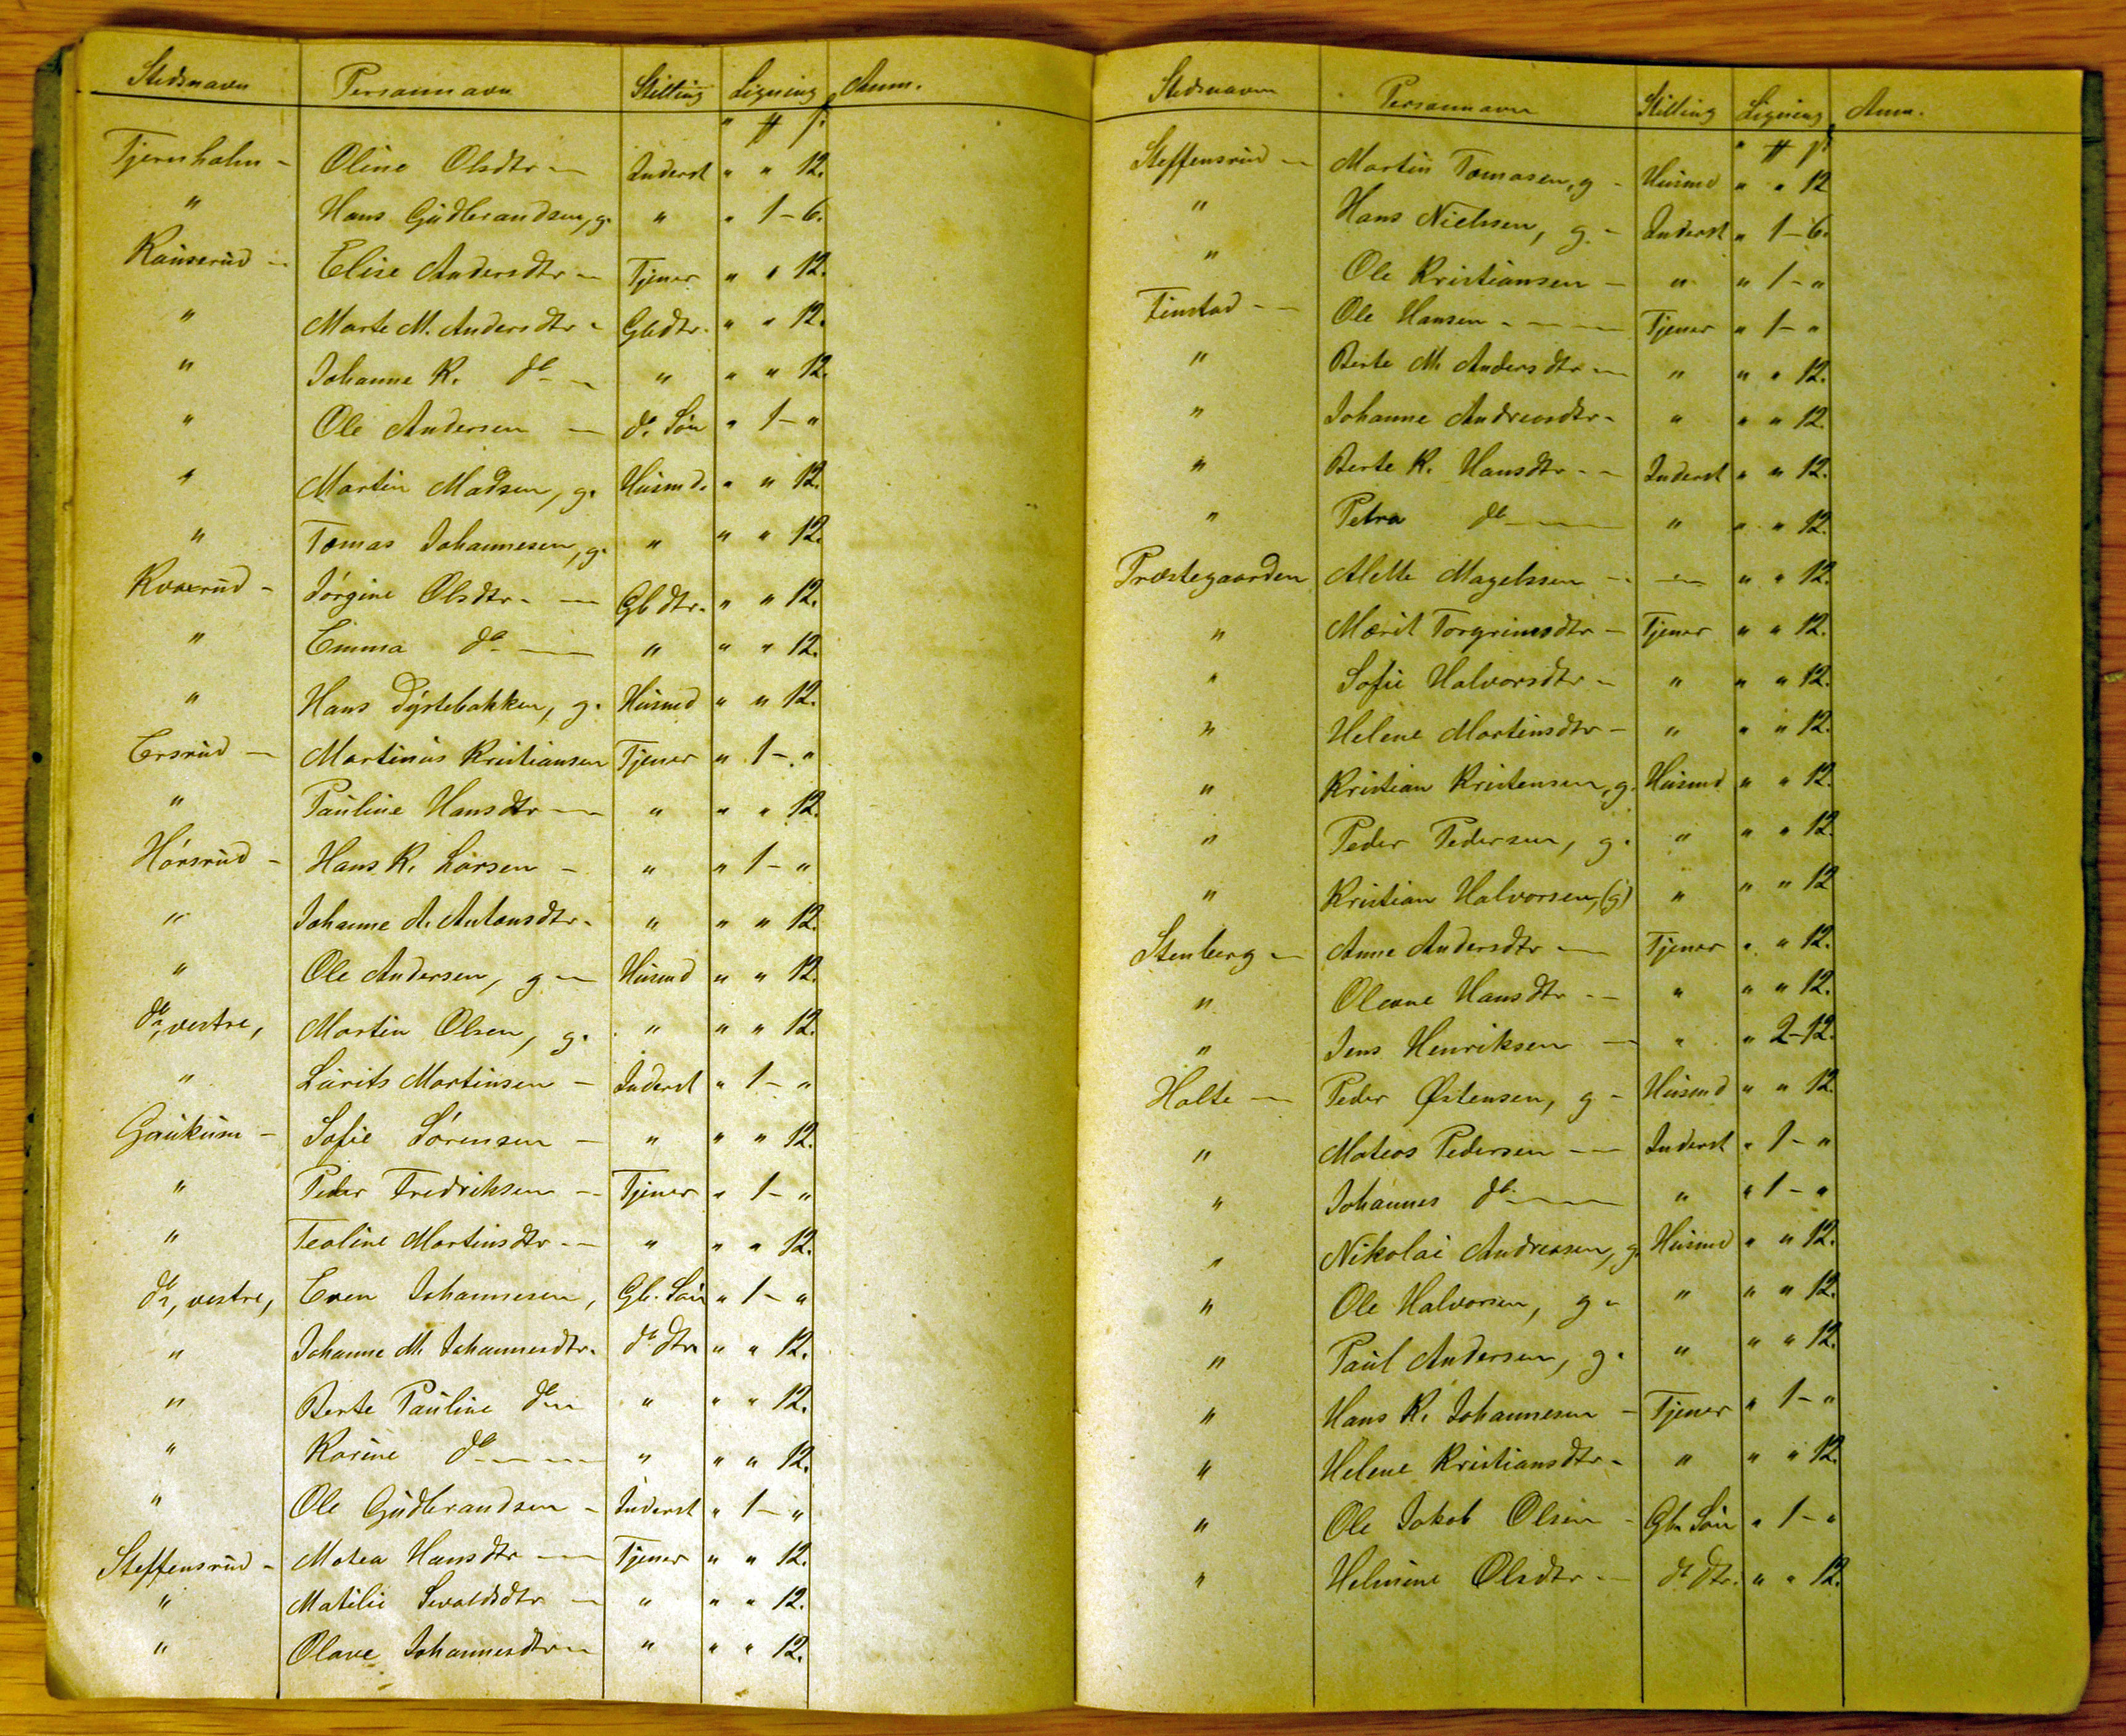 Stedsnavn Personnavn Stilling Ligning Anm.
Tjernholm - Oline Olsdtr - Inderst " " 12.
" Hans Gudbrandsen, g. " " 1-6.
Rauserud - Elise Andersdtr - Tjener " " 12.
" Marte M. Andersdtr - Gbdtr. " " 12.
" Johanne K. do - " " " 12.
" Ole Andersen - do. Søn " 1 - "
" Martin Madsen, g. Husmd. " " 12.
" Tomas Johannesen, g. " " " 12.
Kværud - Jørgine Olsdtr. - Gbdtr. " " 12.
" Emma do - " " " 12.
" Hans Dystebakken, g. Husmd " " 12.
Ersrud - Martinus Kristiansen Tjener " 1 - "
" Pauline Hansdtr - " " " 12.
Hørsrud - Hans K. Larsen - " " 1 - "
" Johanne A. Antonsdtr. " " " 12.
" Ole Andersen, g - Husmd " " 12.
do, vestre, Martin Olsen, g. " " " 12.
" Laurits Martinsen - Inderst " 1 - "
Gaukum - Sofie Sørensen - " " " 12.
" Peder Fredriksen - Tjener " 1 - "
" Teoline Martinsdtr - " " " 12.
do, vestre, Even Johannesen, Gb. Søn " 1 - "
" Johanne M. Johannesdtr. do dtr. " " 12.
" Berte Pauline do - " " " 12.
" Karine do - " " " 12.
" Ole Gudbrandsen - Inderst " 1 - "
Steffensrud - Matea Hansdtr - Tjener " " 12.
" Matilie Sevaldsdtr - " " " 12.
" Olave Johannesdtr - " " " 12.
Stedsnavn Personnavn Stilling Ligning Anm.
Steffensrud - Martin Tomasen, g - Husmd " " 12
" Hans Nielsen, g. - Inderst " 1-6.
" Ole Kristiansen - " " 1 - "
Finstad - Ole Hansen - Tjener " 1 - "
" Berte M. Andersdtr - " " " 12.
" Johanne Andreasdtr. " " " 12.
" Berte K. Hansdtr - Inderst " " 12.
" Petra do - " " " 12.
Præstegaarden Alette Magelssen - - " " 12.
" Marit Torgrimsdtr - Tjener " " 12.
" Sofie Halvorsdtr - " " " 12.
" Helene Martinsdtr - " " " 12.
" Kristian Kristensen, g. Husmd " " 12.
" Peder Pedersen, g. " " " 12.
" Kristian Halvorsen, (g) " " " 12
Stenberg - Anne Andersdtr - Tjener " " 12.
" Oleane Hansdtr - " " " 12.
" Jens Henriksen - " " 2-12.
Holte - Peder Østensen, g - Husmd " " 12.
" Mateos Pedersen - Inderst " 1 - "
" Johannes do. - " " 1 - "
" Nikolai Andreasen, g. Husmd " " 12.
" Ole Halvorsen, g - " " " 12.
" Paul Andersen, g. " " " 12.
" Hans K. Johannesen - Tjener " 1 - "
" Helene Kristiansdtr - " " " 12.
" Ole Jakob Olsen - Gb. Søn " 1 - "
" Helmine Olsdtr - do Dtr. " " 12.